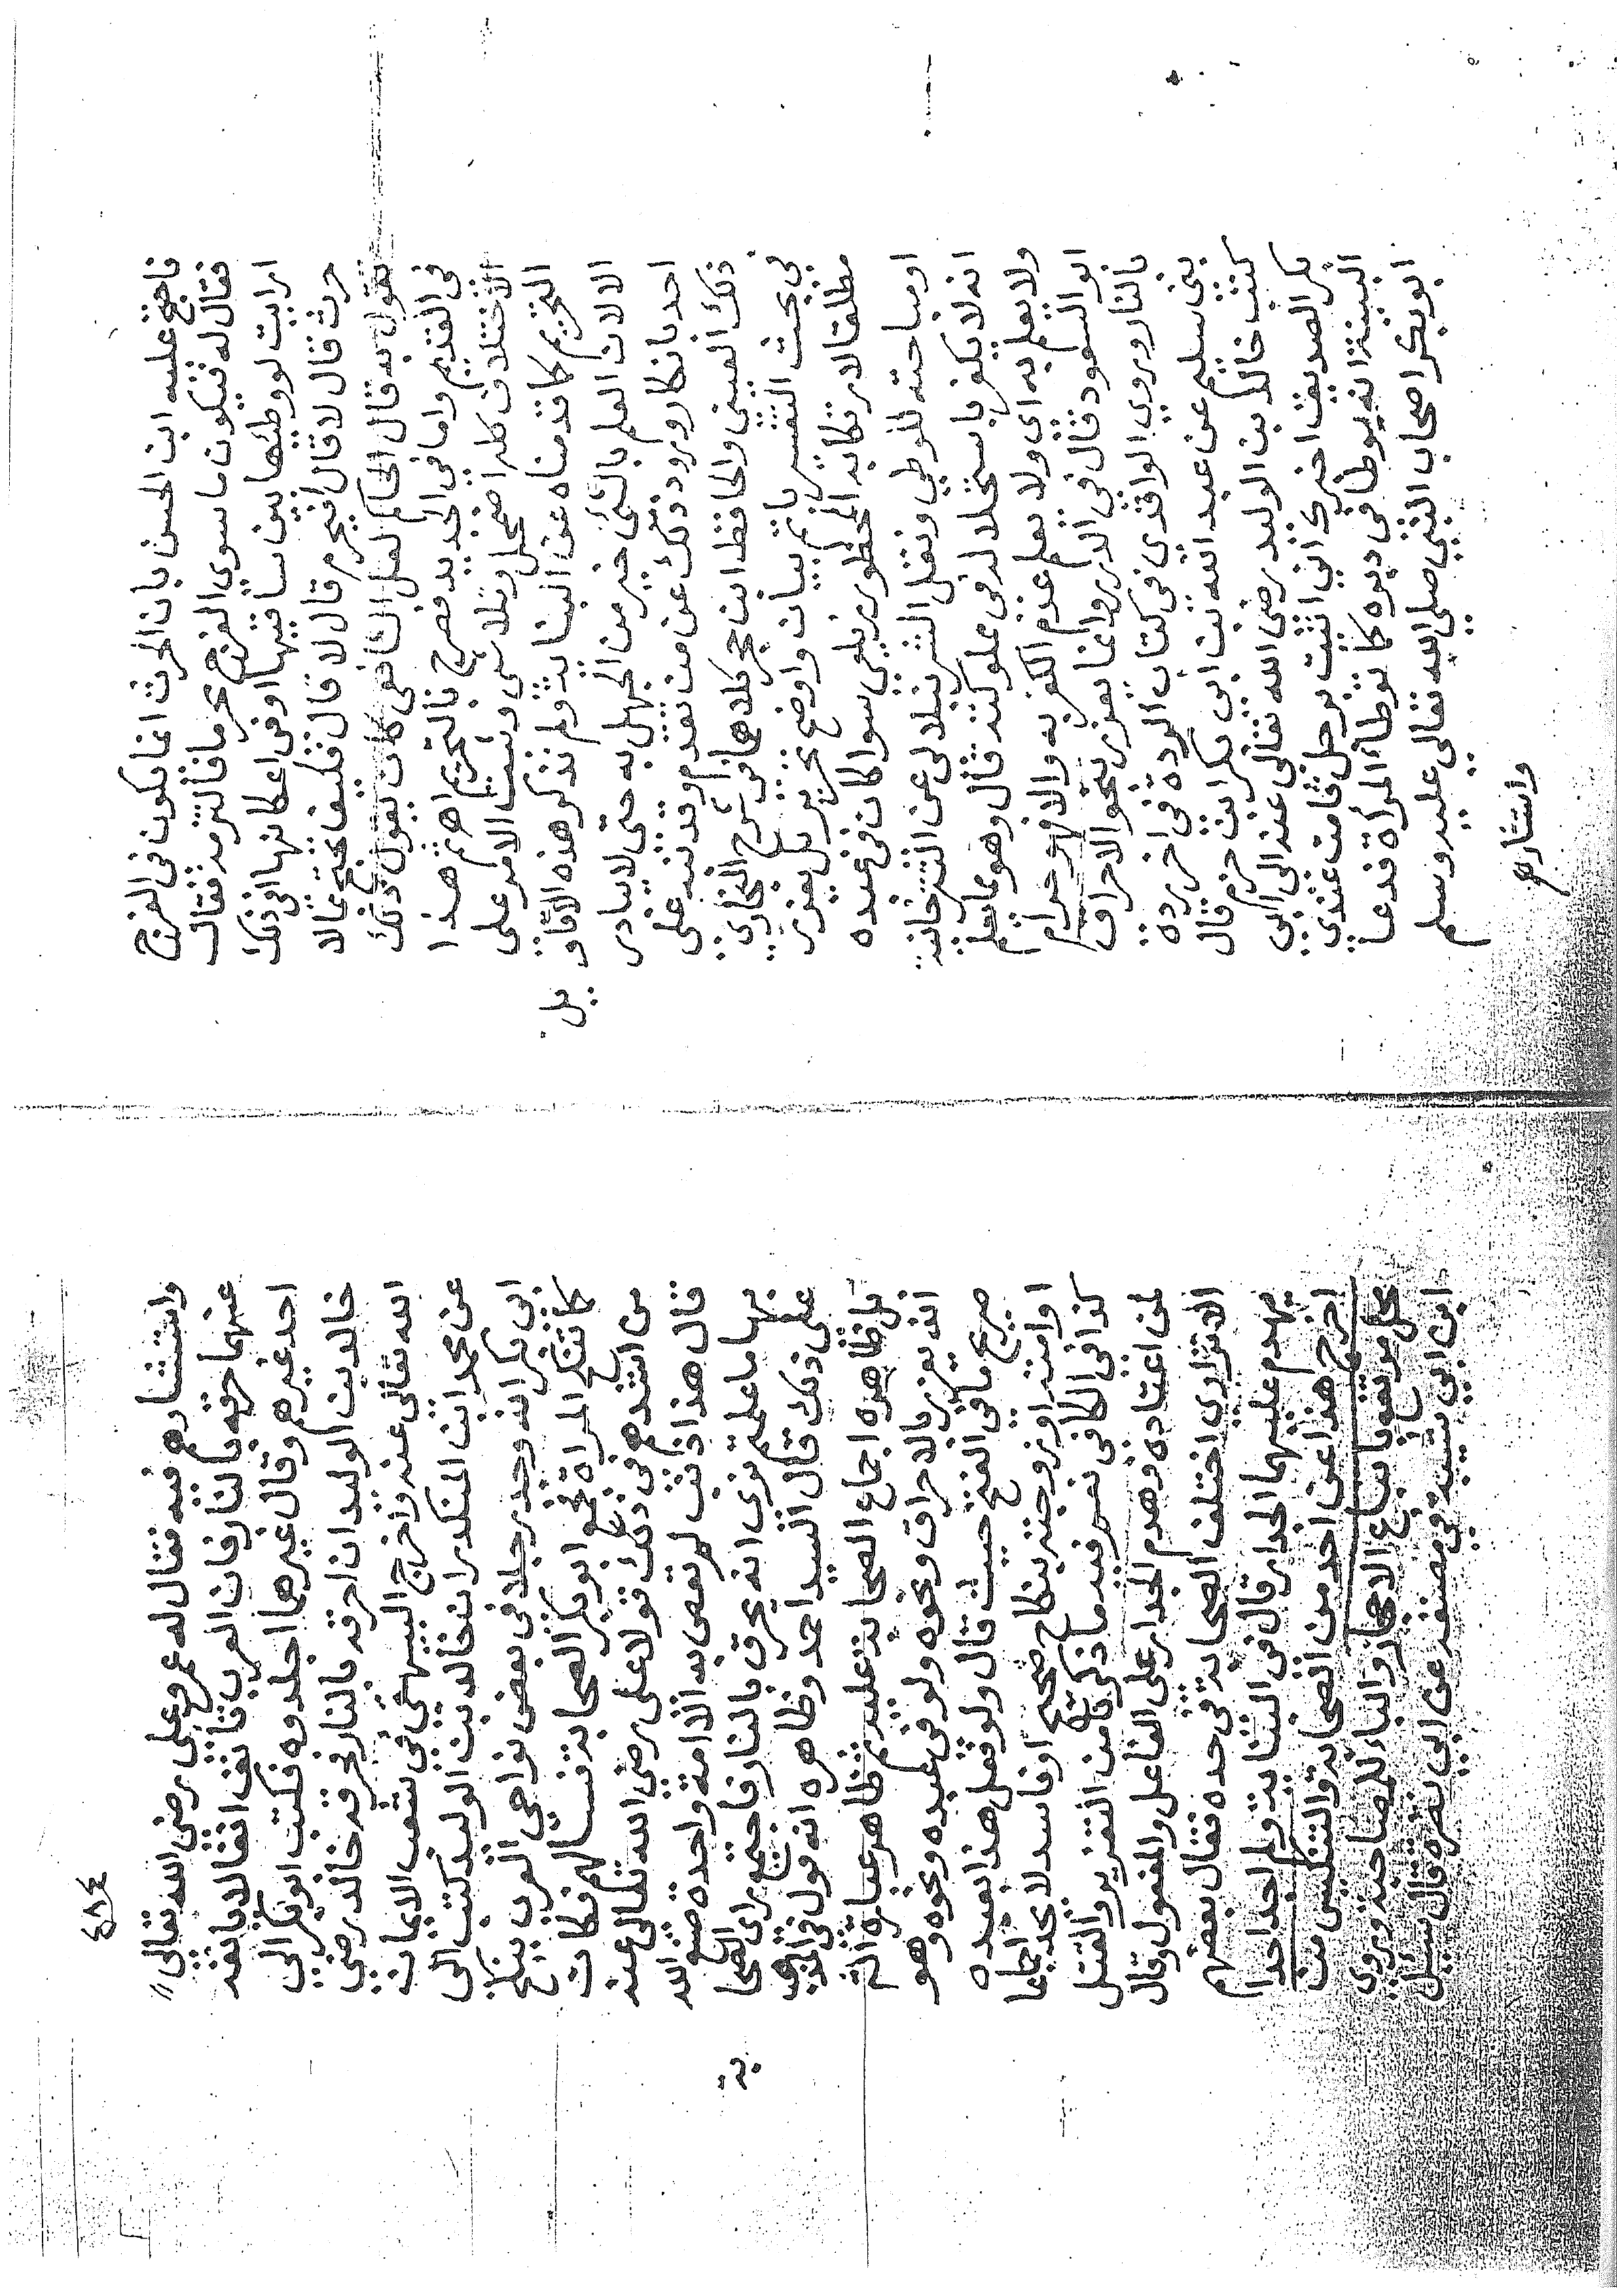 فاحتج عليه ابن الحسن بان الحرث انما يكون في الفرج
فقال له فيكون ما سوى الفرج محرما فالتزمه فقال
ارايت لو وطئها بين ساقيها او في اعكانها افي ذلك
حرث قال لا قال افيحرم قال لا قال فكيف تحتج بما لا
تقول به قال الحاكم لعل الشافعي كان يقول ذلك
في القديم واما في الجديد فصرح بالتحريم اهـ ثم هذا
الاختلاف كله اضمحل وتلاشى وثبت الامر على
التحريم كما قدمناه عن البناية ولم نذكر هذه الاقاويل
الا لان العلم بالشي خير من الجهل به حتى لا يبادر
احد بانكار ورود ذلك عن من تقدم وقد نبه على
ذلك العيني والحافظ ابن حجر كلاهما في شرح البخاري
في بحث التفسير باتم بيان واوضح تحرير بل يعزر
مطلقا لارتكابه المحظور زيلعي سوا كان في عبده
او مباحته للوطي ونقل الشرنبلالي عن التترخانية
انه لا يكفر باستحلاله في مملوكته قال وهو مما يعلم
ولا يعلم به اى ولا يعلم عدم الكفر به والا فهو حرام
ابو السعود قال في الدرر وانما يعزر بنحو الاحراق
بالنار وروى الواقدي في كتاب الردة في اخر ردة
بني سليم عن عبد الله بن ابي بكر ابن حزم قال
كتب خالد بن الوليد رضي الله تعالى عنه الى ابي
بكر الصديق اخبرك اني اتيت برجل قامت عندي
البينة انه يوطا في دبره كما توطا المراة فدعا
ابو بكر اصحاب النبي صلى الله تعالى عليه وسلم
واستشارهم
٤٨٤
واستشارهم فيه فقال له عمر وعلي رضي الله تعالى
عنهما حرقه بالنار فان العرب تانف انفا لا يانفه
احد غيرهم وقال غيرهما اجلدوه فكتب ابو بكر الى
خالد بن الوليد ان احرقه بالنار فحرقه خالد رضي
الله تعالى عنه واخرج البيهقي في شعب الايمان
عن محمد ابن المنكدر ان خالد بن الوليد كتب الى
ابي بكر انه وجد رجلا في بعض نواحي العرب ينكح
كما تنكح المراة فجمع ابو بكر الصحابة فسالهم فكان
من اشدهم في ذلك قولا علي رضي الله تعالى عنه
قال هذا ذنب لم تعص به الا امة واحدة صنع الله
بها ما علمتم نرى انه يحرق بالنار فاجتمع راى الصحابة
على ذلك قال السيد احمد وظاهره انه قول في المذهب
بل ظاهره اجماع الصحابة عليه ثم ظاهر عبارته
انه يعزر بالاحراق ونحوه ولو في عبده ونحوه وهو
صريح ما في الفتح حيث قال ولو فعل هذا بعبده
او امته او زوجته بنكاح صحيح او فاسد لا يحد اجماعا
كذا في الكافي نعم فيه ما ذكرنا من التعزير والقتل
لمن اعتاده وهدم الجدار على الفاعل والمفعول وقال
الاتراري اختلف الصحابة في حده فقال بعضهم
يهدم عليهما الجدار قال في البناية ولم اجد احدا
اخرج هذا عن احد من الصحابة والتنكيس من
محل مرتفع باتباع الاحجار والباء للمصاحبة وروى
ابن ابي شيبة في مصنفه عن ابي نضرة قال سئل